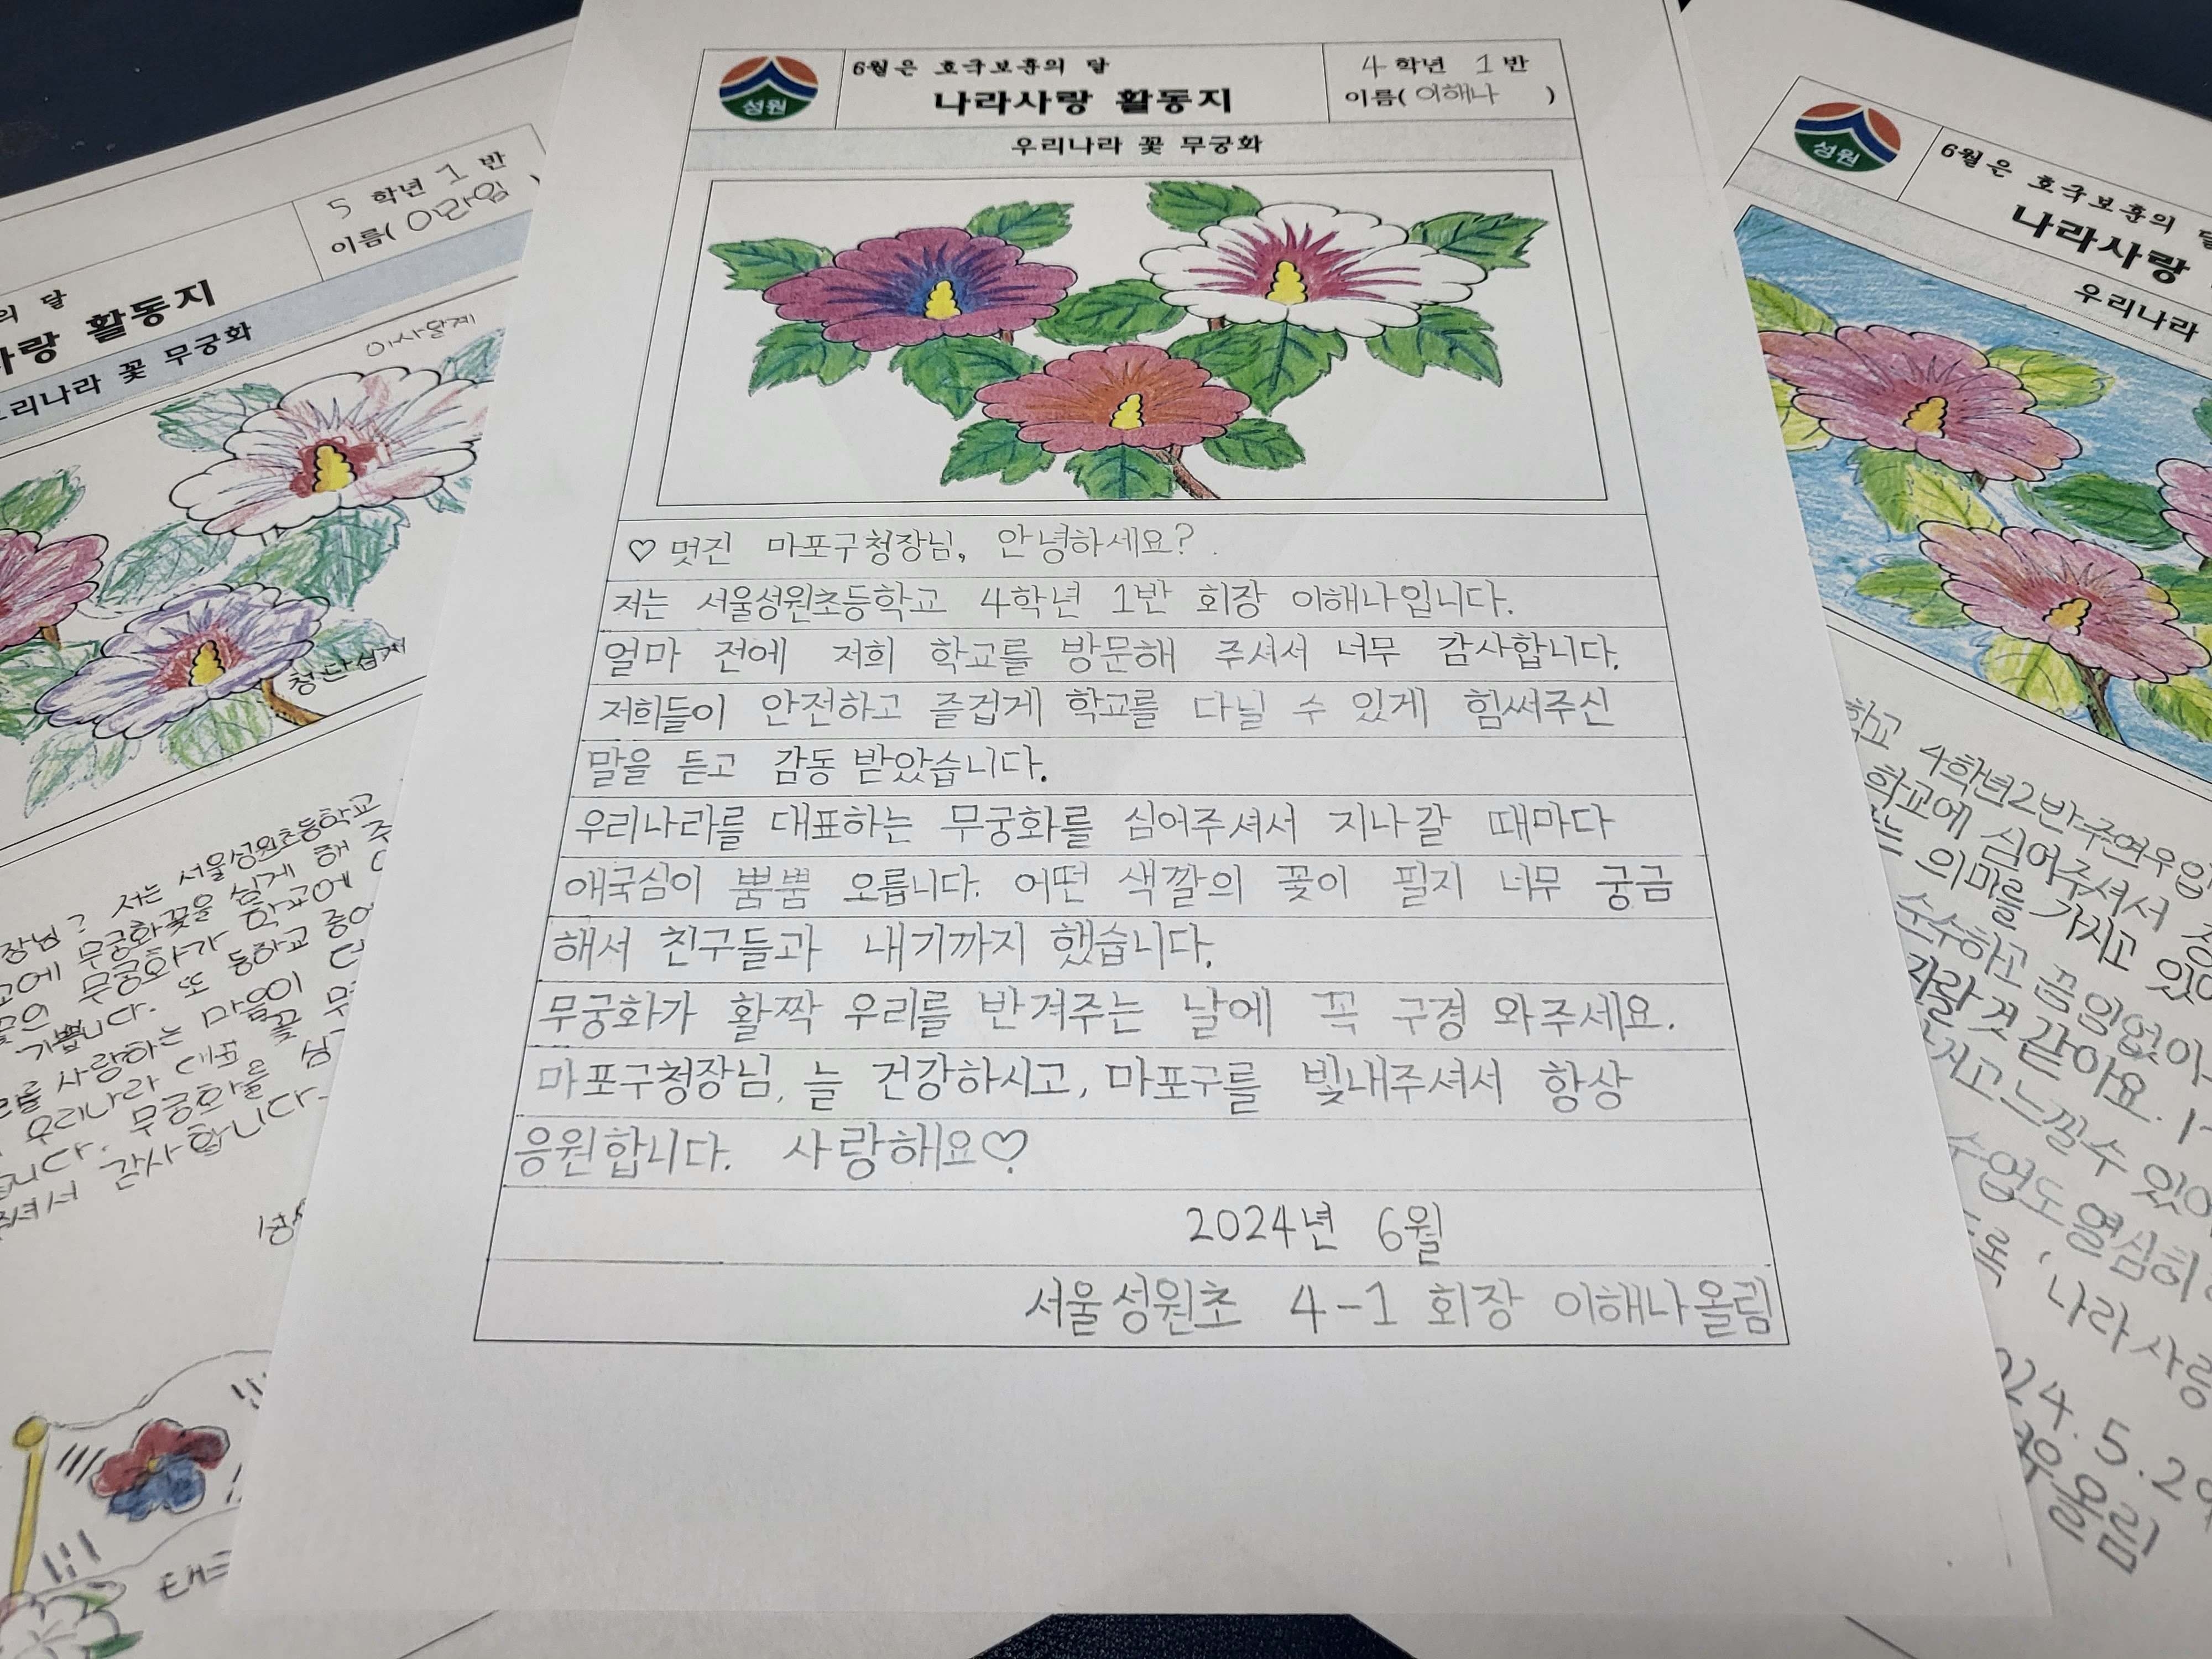 성원
6월은 호국보훈의 달
나라사랑 활동지
4 학년 1 반
이름( 이해나 )
우리나라 꽃 무궁화
♡ 멋진 마포구청장님, 안녕하세요?
저는 서울성원초등학교 4학년 1반 회장 이해나입니다.
얼마 전에 저희 학교를 방문해 주셔서 너무 감사합니다.
저희들이 안전하고 즐겁게 학교를 다닐 수 있게 힘써주신
말을 듣고 감동 받았습니다.
우리나라를 대표하는 무궁화를 심어주셔서 지나갈 때마다
애국심이 뿜뿜 오릅니다. 어떤 색깔의 꽃이 필지 너무 궁금
해서 친구들과 내기까지 했습니다.
무궁화가 활짝 우리를 반겨주는 날에 꼭 구경 와주세요.
마포구청장님, 늘 건강하시고, 마포구를 빛내주셔서 항상
응원합니다. 사랑해요♡
2024년 6월
서울성원초 4-1 회장 이해나올림
5 학년 1 반
이름(
의 달
사랑 활동지
우리나라 꽃 무궁화
이사달계
청단심계
장님? 저는 서울성원초등학교
무궁화꽃을 심게 해 주
무궁화가 학교에
기쁩니다. 또 등하교
사랑하는 마음이 더
우리나라 대표 꽃 무
무궁화를 심
감사합니다
성원
6월은 호국보훈의 달
나라사랑
우리나라
학교 4학년2반주연우입
학교에 심어주셔서
는 의미를 가지고 있어
순수하고 끊임없이
자랄 것 같아요.
느낄수 있어
수업도 열심히
록 '나라사랑
024. 5. 29
연우올림